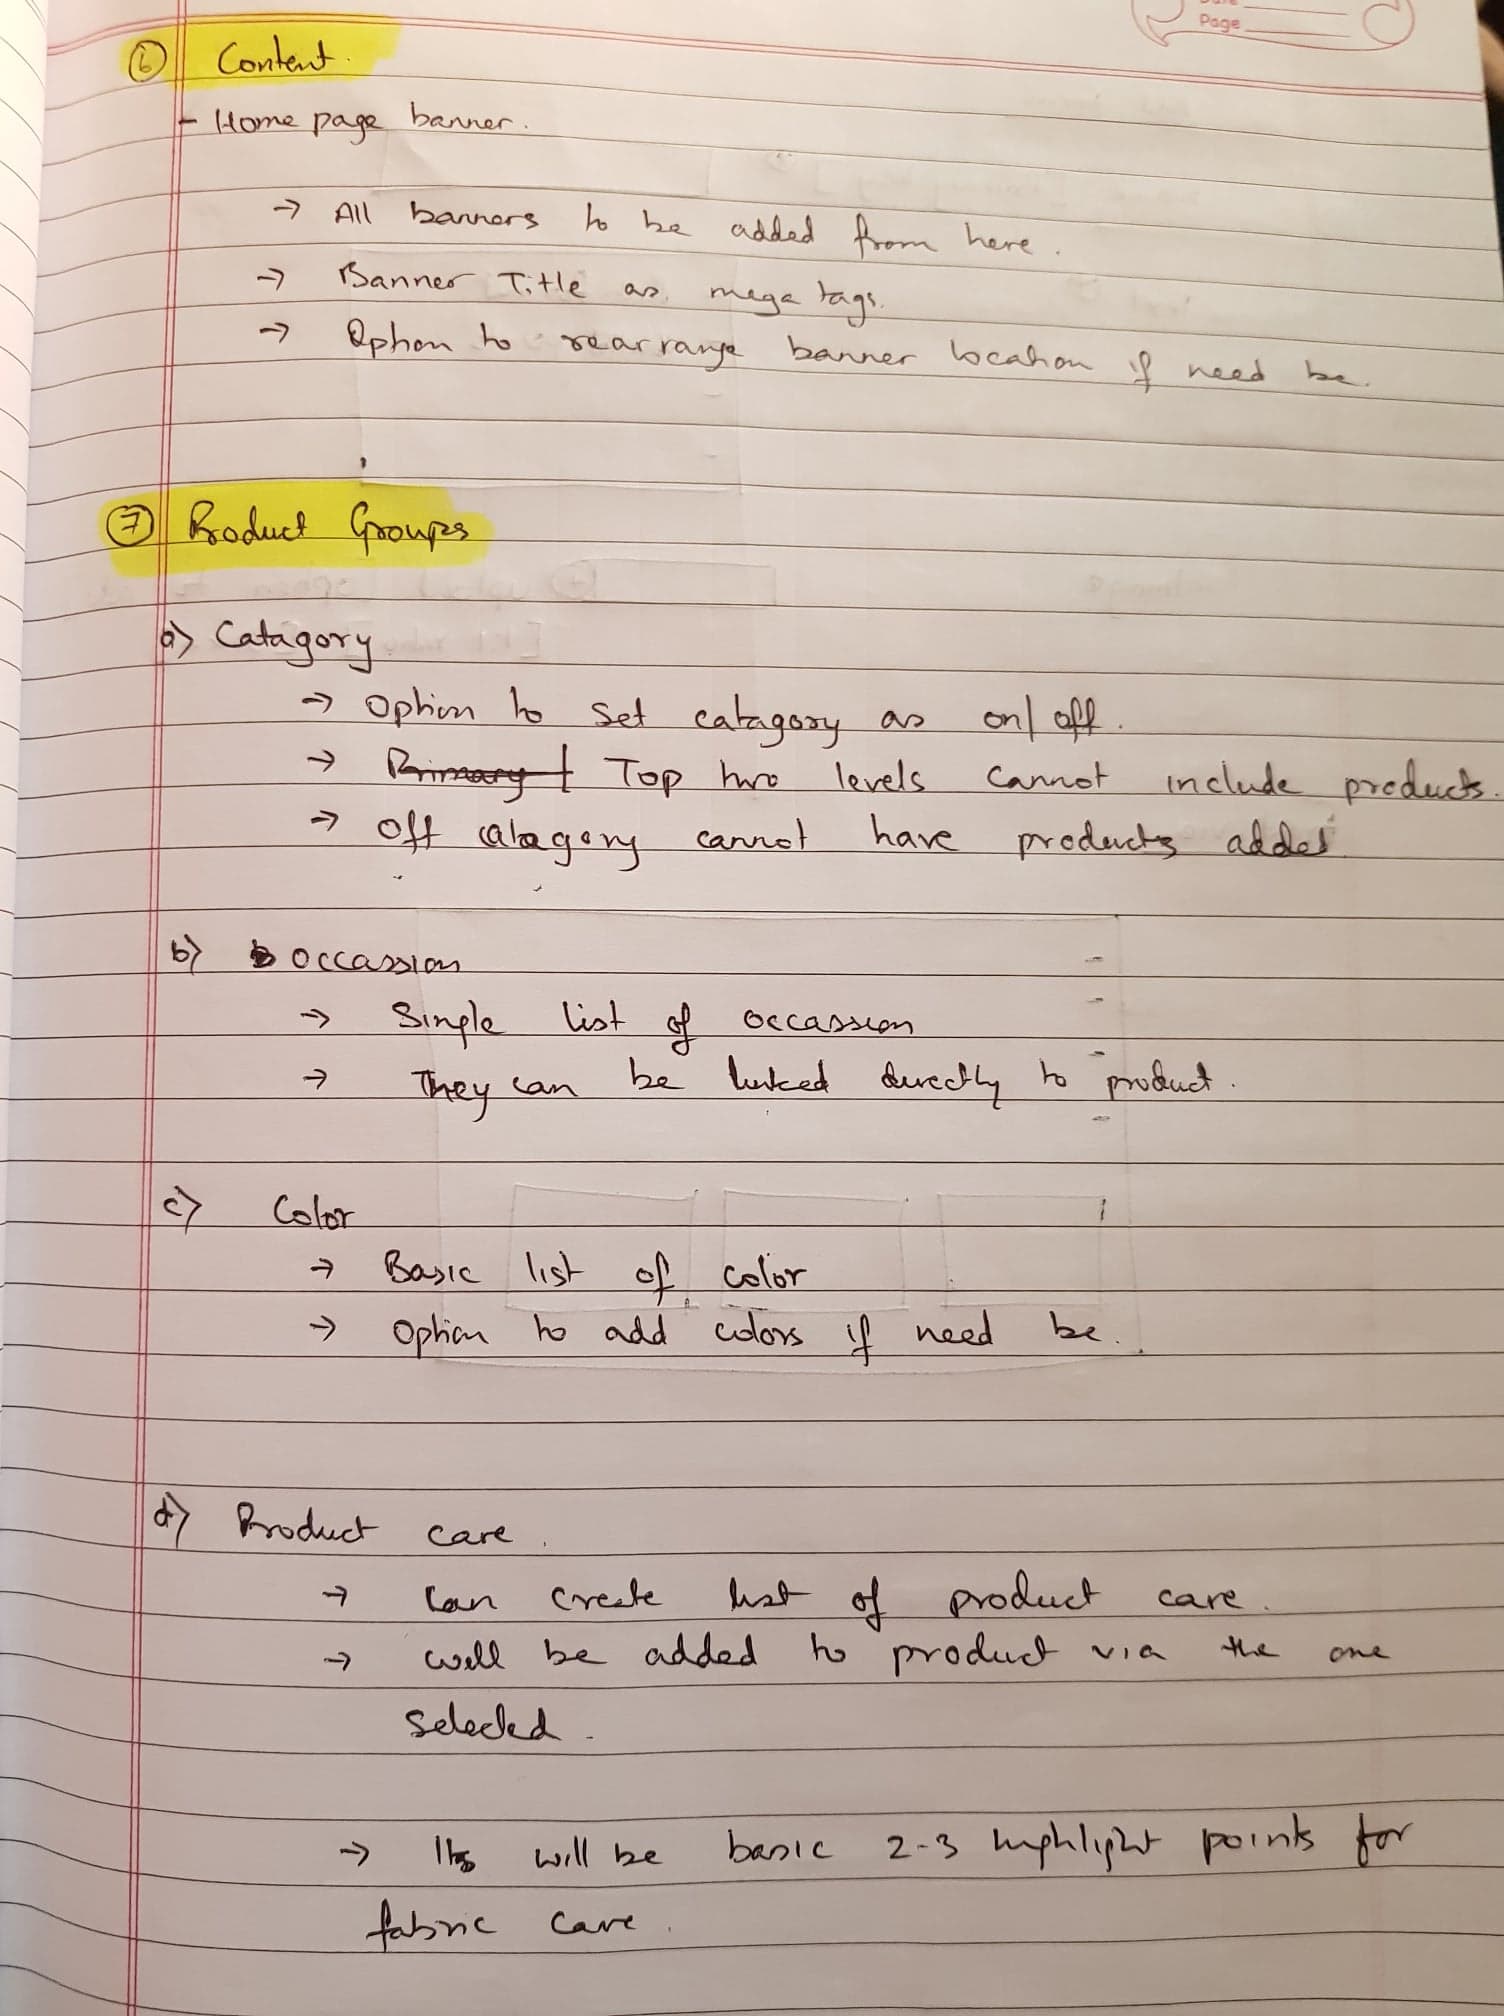 Page
⑥ Content.
- Home page banner.
→ All banners to be added from here.
→ Banner Title as mega tags.
→ Option to rearrange banner location if need be.
⑦ Product Groups
a) Catagory
→ Option to set catagory as on/off.
→ Primary t Top two levels cannot include products.
→ Off catagory cannot have products added
b) Occassion
→ Simple list of occassion
→ They can be linked directly to product.
c) Color
→ Basic list of color
→ Option to add colors if need be.
d) Product care.
→ Can create list of product care.
→ will be added to product via the one
selected.
→ Its will be basic 2-3 highlight points for
fabric care.